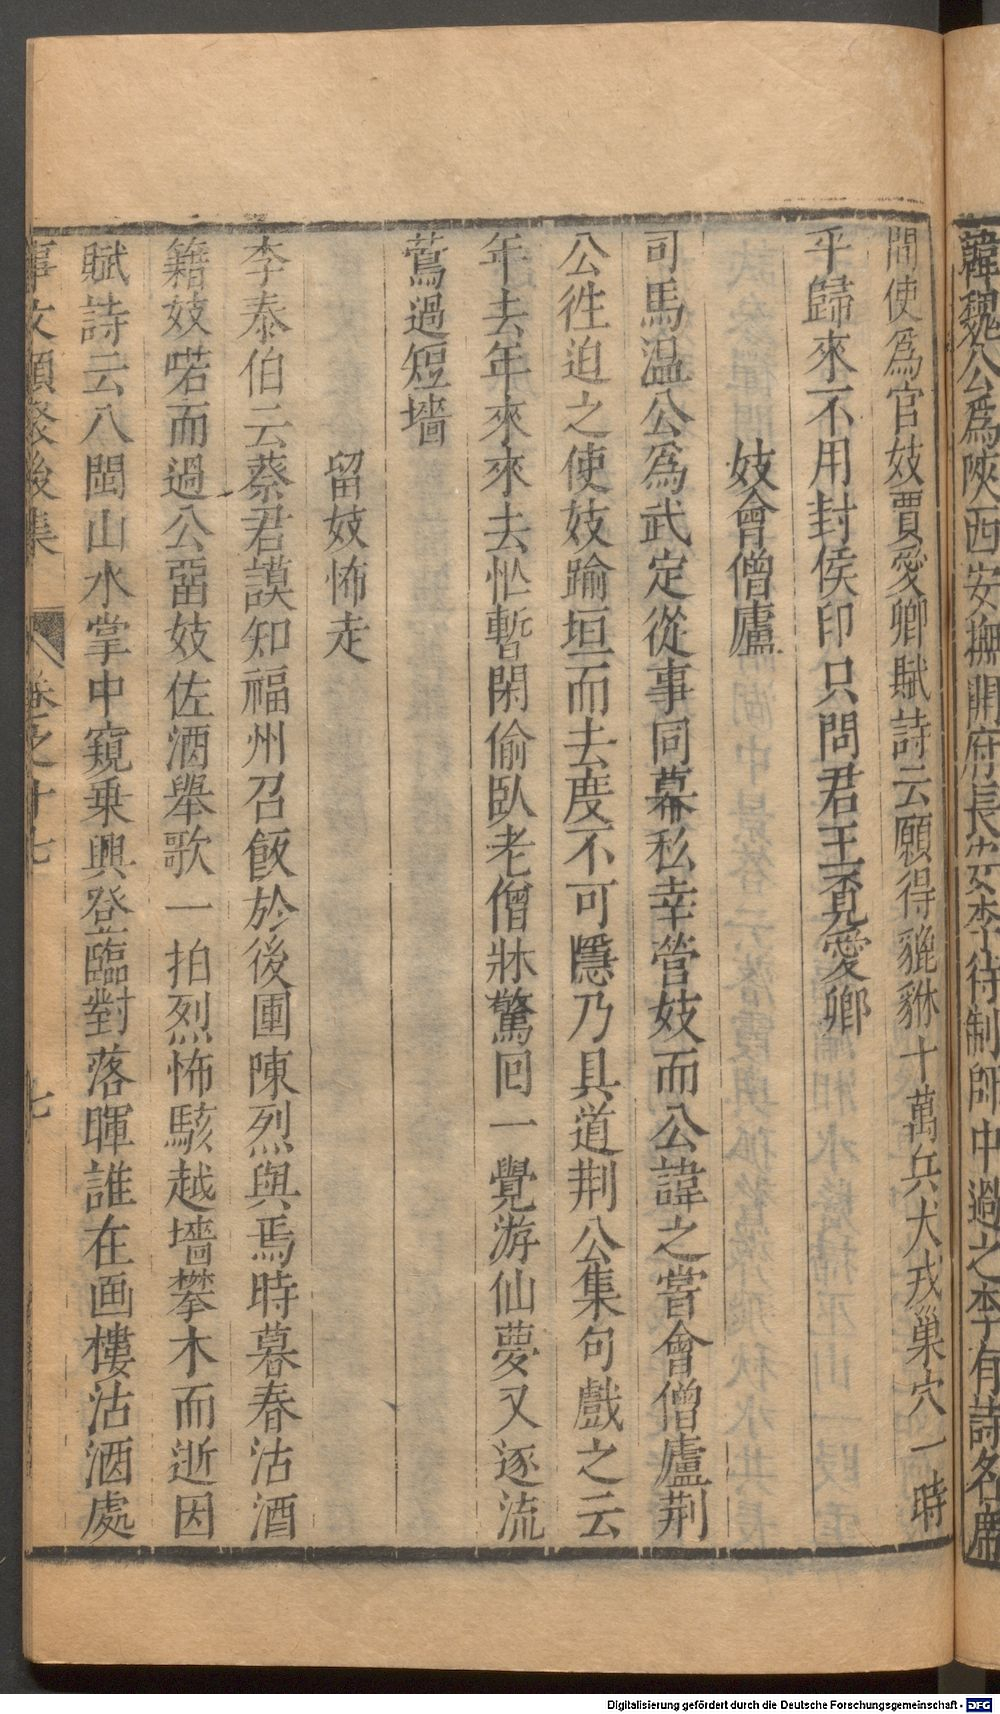 韓魏公爲陝西安撫開府長安李待制師中過之李有詩名席
間使爲官妓賈愛卿賦詩云願得貔貅十萬兵犬戎巢穴一時
平歸來不用封侯印只問君王覔愛卿
妓會僧廬
司馬温公爲武定從事同幕私幸營妓而公諱之嘗會僧廬荆
公徃迫之使妓踰垣而去度不可隱乃具道荆公集句戲之云
年去年來來去忙暫閑偷臥老僧牀驚回一覺游仙夢又逐流
鶯過短墻
留妓怖走
李泰伯云蔡君謨知福州召飯於後圃陳烈與焉時暮春沽酒
籍妓喏而過公畱妓佐酒舉歌一拍烈怖駭越墻攀木而逝因
賦詩云八閩山水掌中窺乗興登臨對落暉誰在画樓沽酒處
事文類聚後集 卷之十七 七
Digitalisierung gefördert durch die Deutsche Forschungsgemeinschaft - DFG